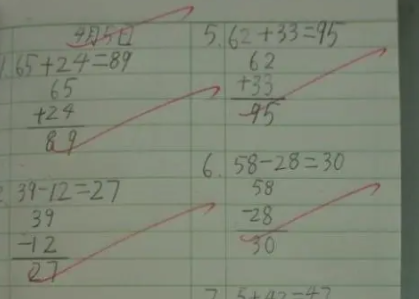 4月5日
1. 65+24=89
65
+24
89
39-12=27
39
-12
27
5. 62+33=95
62
+33
95
6. 58-28=30
58
-28
30